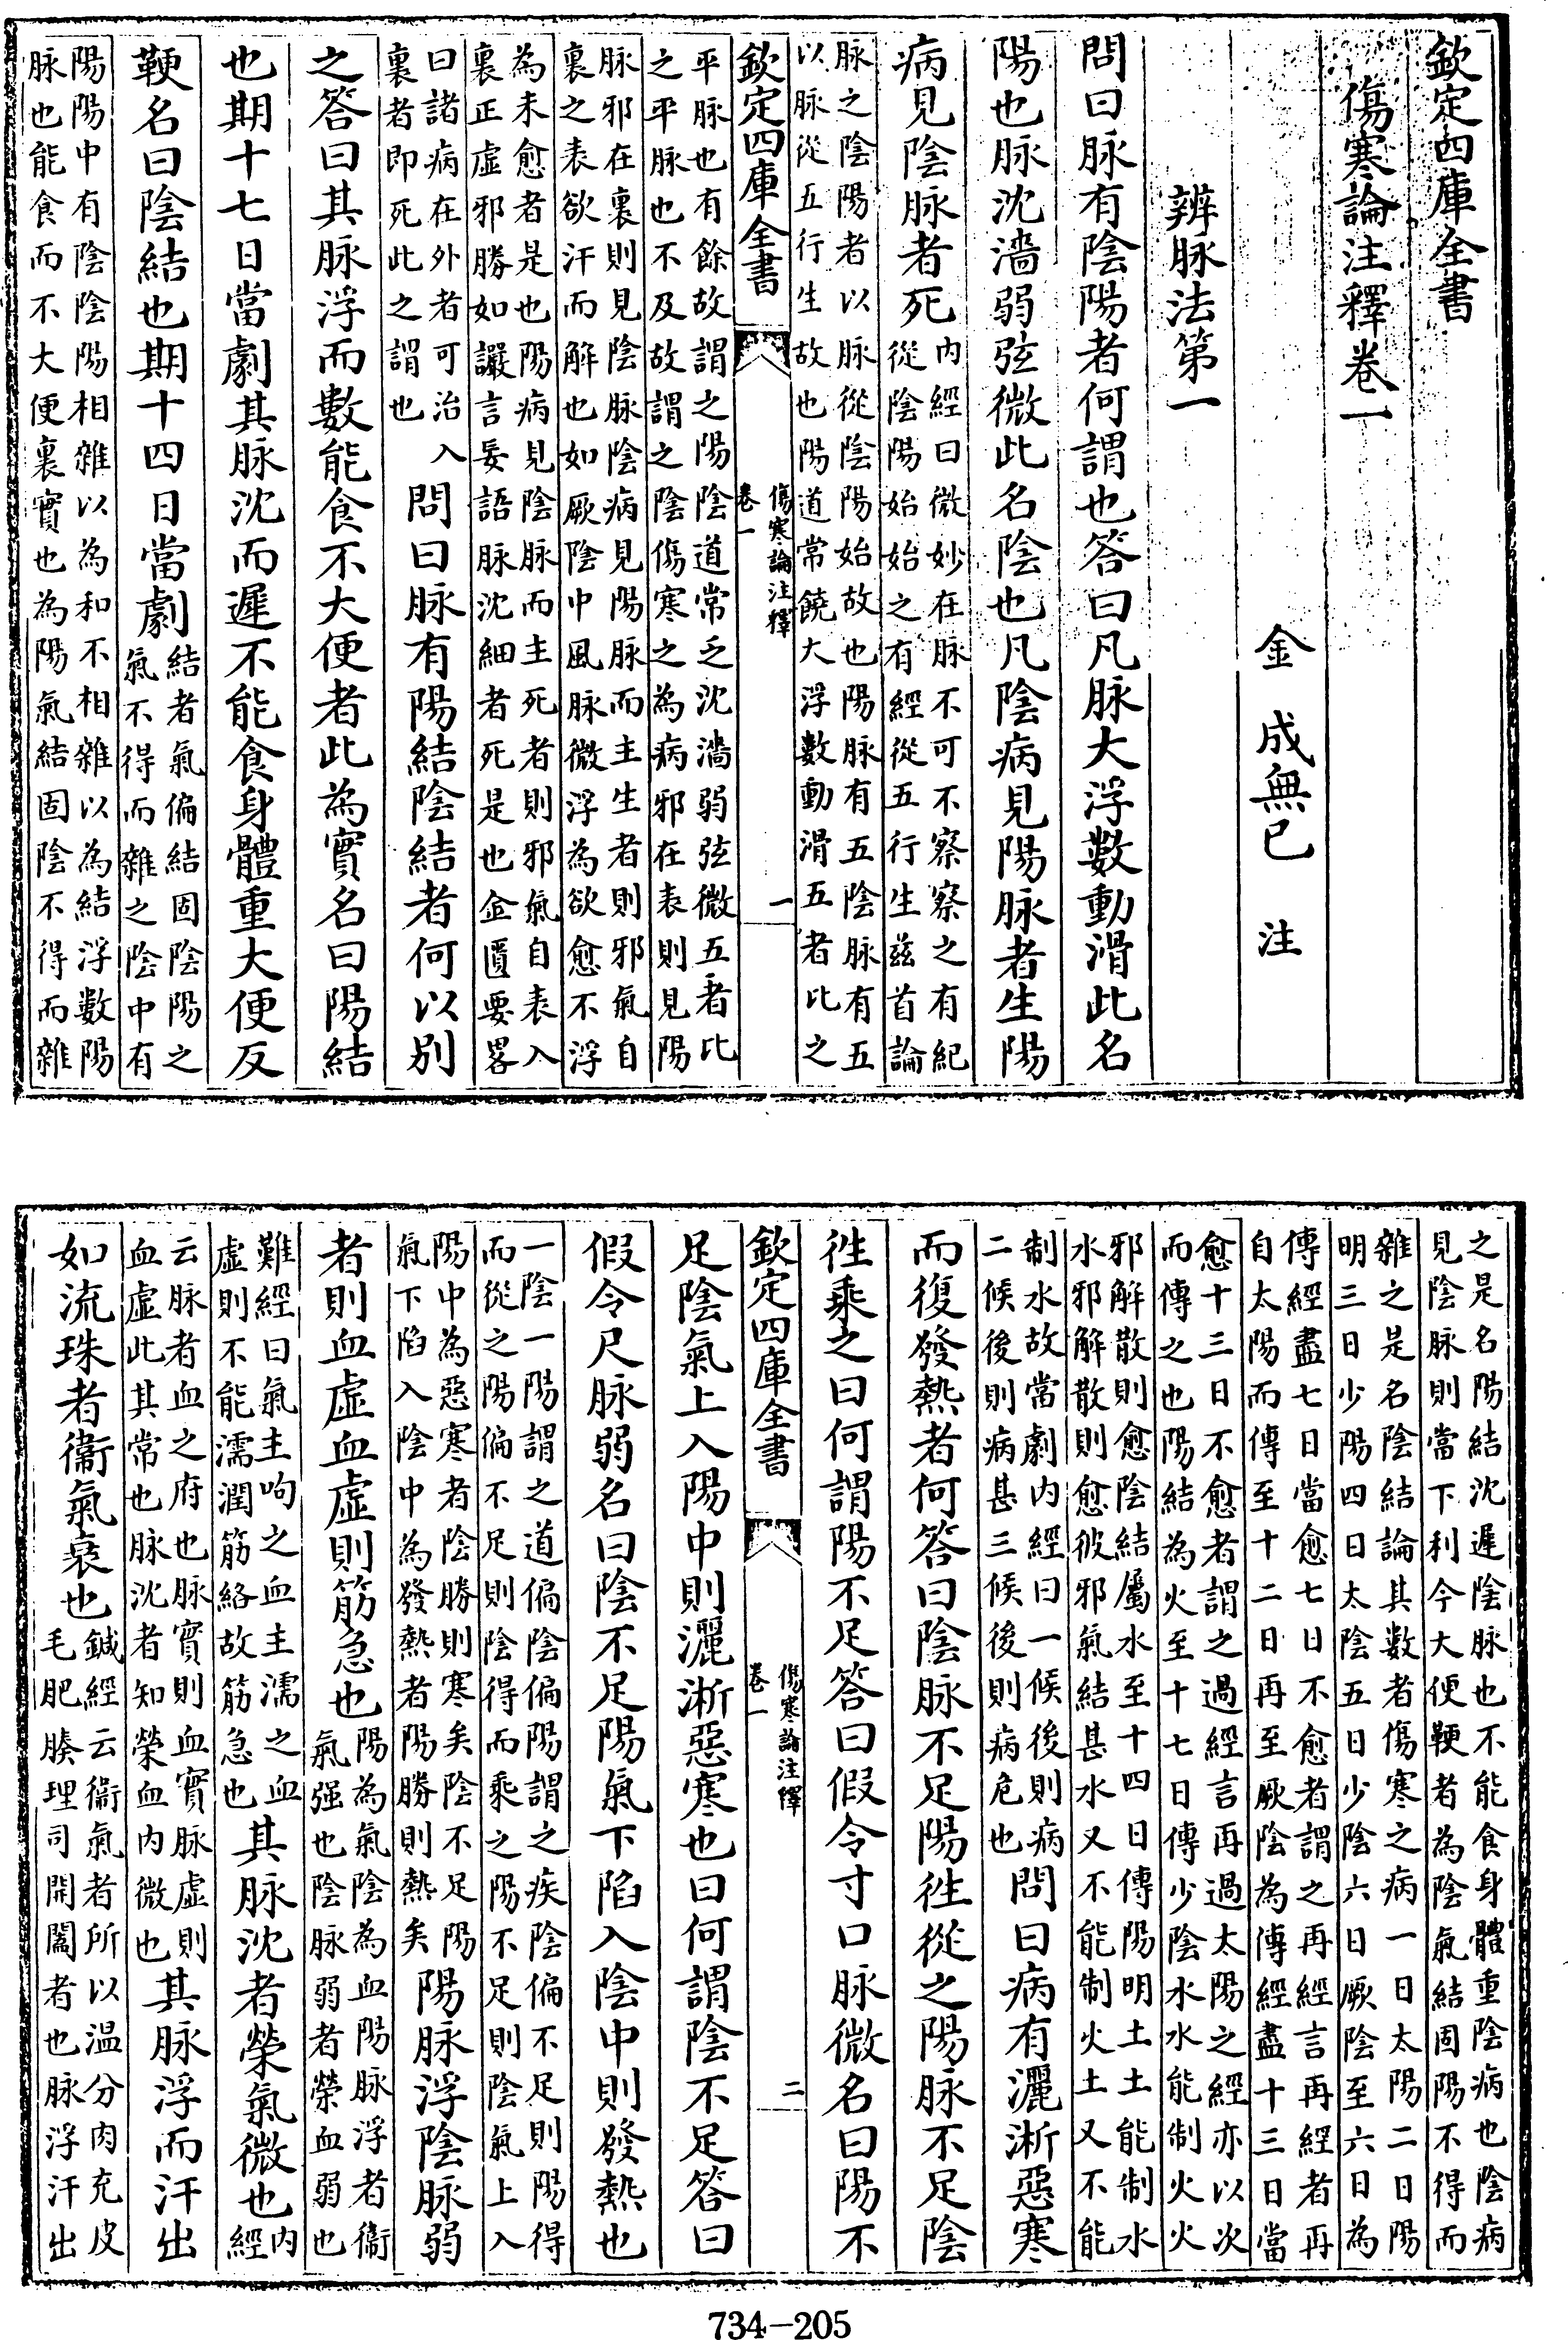 欽定四庫全書
傷寒論注釋卷一
金 成無已 注
辨脉法第一
問曰脉有陰陽者何謂也答曰凡脉大浮數動滑此名
陽也脉沈濇弱弦微此名陰也凡陰病見陽脉者生陽
病見陰脉者死内經曰微妙在脉不可不察察之有紀
從陰陽始始之有經從五行生兹首論
脉之陰陽者以脉從陰陽始故也陽脉有五陰脉有五
以脉從五行生故也陽道常饒大浮數動滑五者比之
欽定四庫全書
傷寒論注釋
卷一
一
平脉也有餘故謂之陽陰道常乏沈濇弱弦微五者比
之平脉也不及故謂之陰傷寒之為病邪在表則見陽
脉邪在裏則見陰脉陰病見陽脉而主生者則邪氣自
裏之表欲汗而解也如厥陰中風脉微浮為欲愈不浮
為未愈者是也陽病見陰脉而主死者則邪氣自表入
裏正虛邪勝如讝言妄語脉沈細者死是也金匱要畧
曰諸病在外者可治入
裏者即死此之謂也
問曰脉有陽結陰結者何以别
之答曰其脉浮而數能食不大便者此為實名曰陽結
也期十七日當劇其脉沈而遲不能食身體重大便反
鞕名曰陰結也期十四日當劇結者氣偏結固陰陽之
氣不得而雜之陰中有
陽陽中有陰陰陽相雜以為和不相雜以為結浮數陽
脉也能食而不大便裏實也為陽氣結固陰不得而雜
之是名陽結沈遲陰脉也不能食身體重陰病也陰病
見陰脉則當下利今大便鞕者為陰氣結固陽不得而
雜之是名陰結論其數者傷寒之病一日太陽二日陽
明三日少陽四日太陰五日少陰六日厥陰至六日為
傳經盡七日當愈七日不愈者謂之再經言再經者再
自太陽而傳至十二日再至厥陰為傳經盡十三日當
愈十三日不愈者謂之過經言再過太陽之經亦以次
而傳之也陽結為火至十七日傳少陰水水能制火火
邪解散則愈陰結屬水至十四日傳陽明土土能制水
水邪解散則愈彼邪氣結甚水又不能制火土又不能
制水故當劇内經曰一候後則病
二候後則病甚三候後則病危也
問曰病有灑淅惡寒
而復發熱者何答曰陰脉不足陽徃從之陽脉不足陰
徃乘之曰何謂陽不足答曰假令寸口脉微名曰陽不
欽定四庫全書
傷寒論注釋
卷一
二
足陰氣上入陽中則灑淅惡寒也曰何謂陰不足答曰
假令尺脉弱名曰陰不足陽氣下陷入陰中則發熱也
一陰一陽謂之道偏陰偏陽謂之疾陰偏不足則陽得
而從之陽偏不足則陰得而乘之陽不足則陰氣上入
陽中為惡寒者陰勝則寒矣陰不足陽
氣下陷入陰中為發熱者陽勝則熱矣
陽脉浮陰脉弱
者則血虛血虛則筋急也陽為氣陰為血陽脉浮者衞
氣强也陰脉弱者榮血弱也
難經曰氣主呴之血主濡之血
虛則不能濡潤筋絡故筋急也
其脉沈者榮氣微也内
經
云脉者血之府也脉實則血實脉虛則
血虛此其常也脉沈者知榮血内微也
其脉浮而汗出
如流珠者衞氣衰也鍼經云衞氣者所以温分肉充皮
毛肥腠理司開闔者也脉浮汗出
734-205